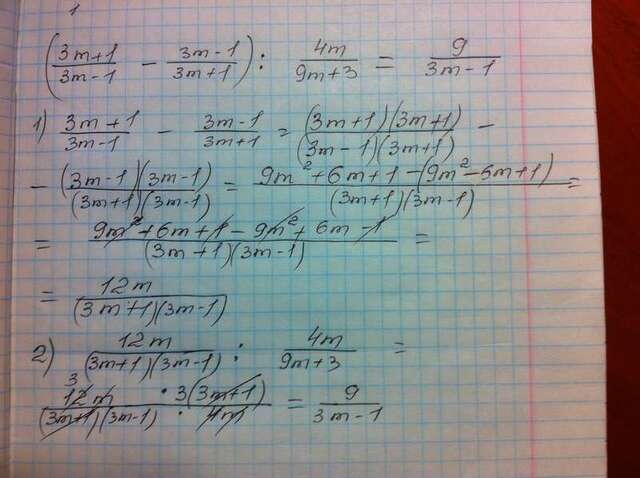 1
((3m+1)/(3m-1) - (3m-1)/(3m+1)) : 4m/(9m+3) = 9/(3m-1)
1) (3m+1)/(3m-1) - (3m-1)/(3m+1) = (3m+1)(3m+1)/(3m-1)(3m+1) -
- (3m-1)(3m-1)/(3m+1)(3m-1) = 9m²+6m+1-(9m²-6m+1)/(3m+1)(3m-1) =
= 9m²+6m+1-9m²+6m-1/(3m+1)(3m-1) =
= 12m/(3m+1)(3m-1)
2) 12m/(3m+1)(3m-1) : 4m/(9m+3) =
3
12m · 3(3m+1)/(3m+1)(3m-1) · 4m = 9/(3m-1)